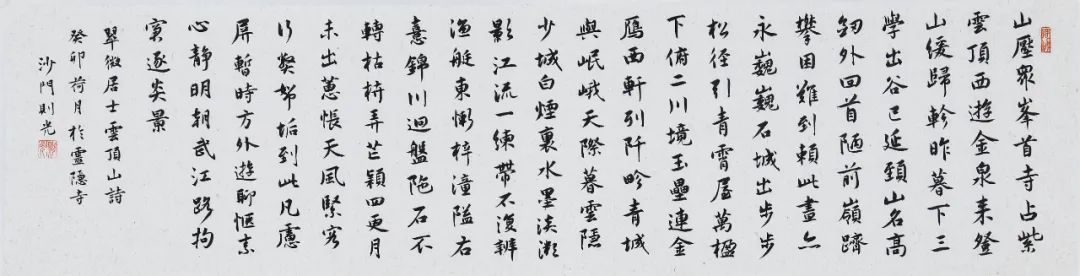 山壓眾峯首寺占紫
雲頂西遊金泉来登
山緩歸軫昨暮下三
學出谷已延頸山名高
劒外回首陋前嶺躋
攀困難到賴此晝亦
永巍巍石城出步步
松徑引青霄屋萬楹
下俯二川境玉壘連金
鴈西軒引阡畛青城
與岷峨天際暮雲隱
少城白煙裏水墨淡
影江流一練帶不復辨
漁艇東梓潼隘右
錦川迴盤陁石不
轉枯枿弄芒穎四更月
未出蕙帳天風緊
垢到此凡慮
屏暫時方外遊聊愜素
心靜明朝武江路拘
窘逐炎景
翠微居士雲頂山詩
癸卯荷月於靈隱寺
沙門則光